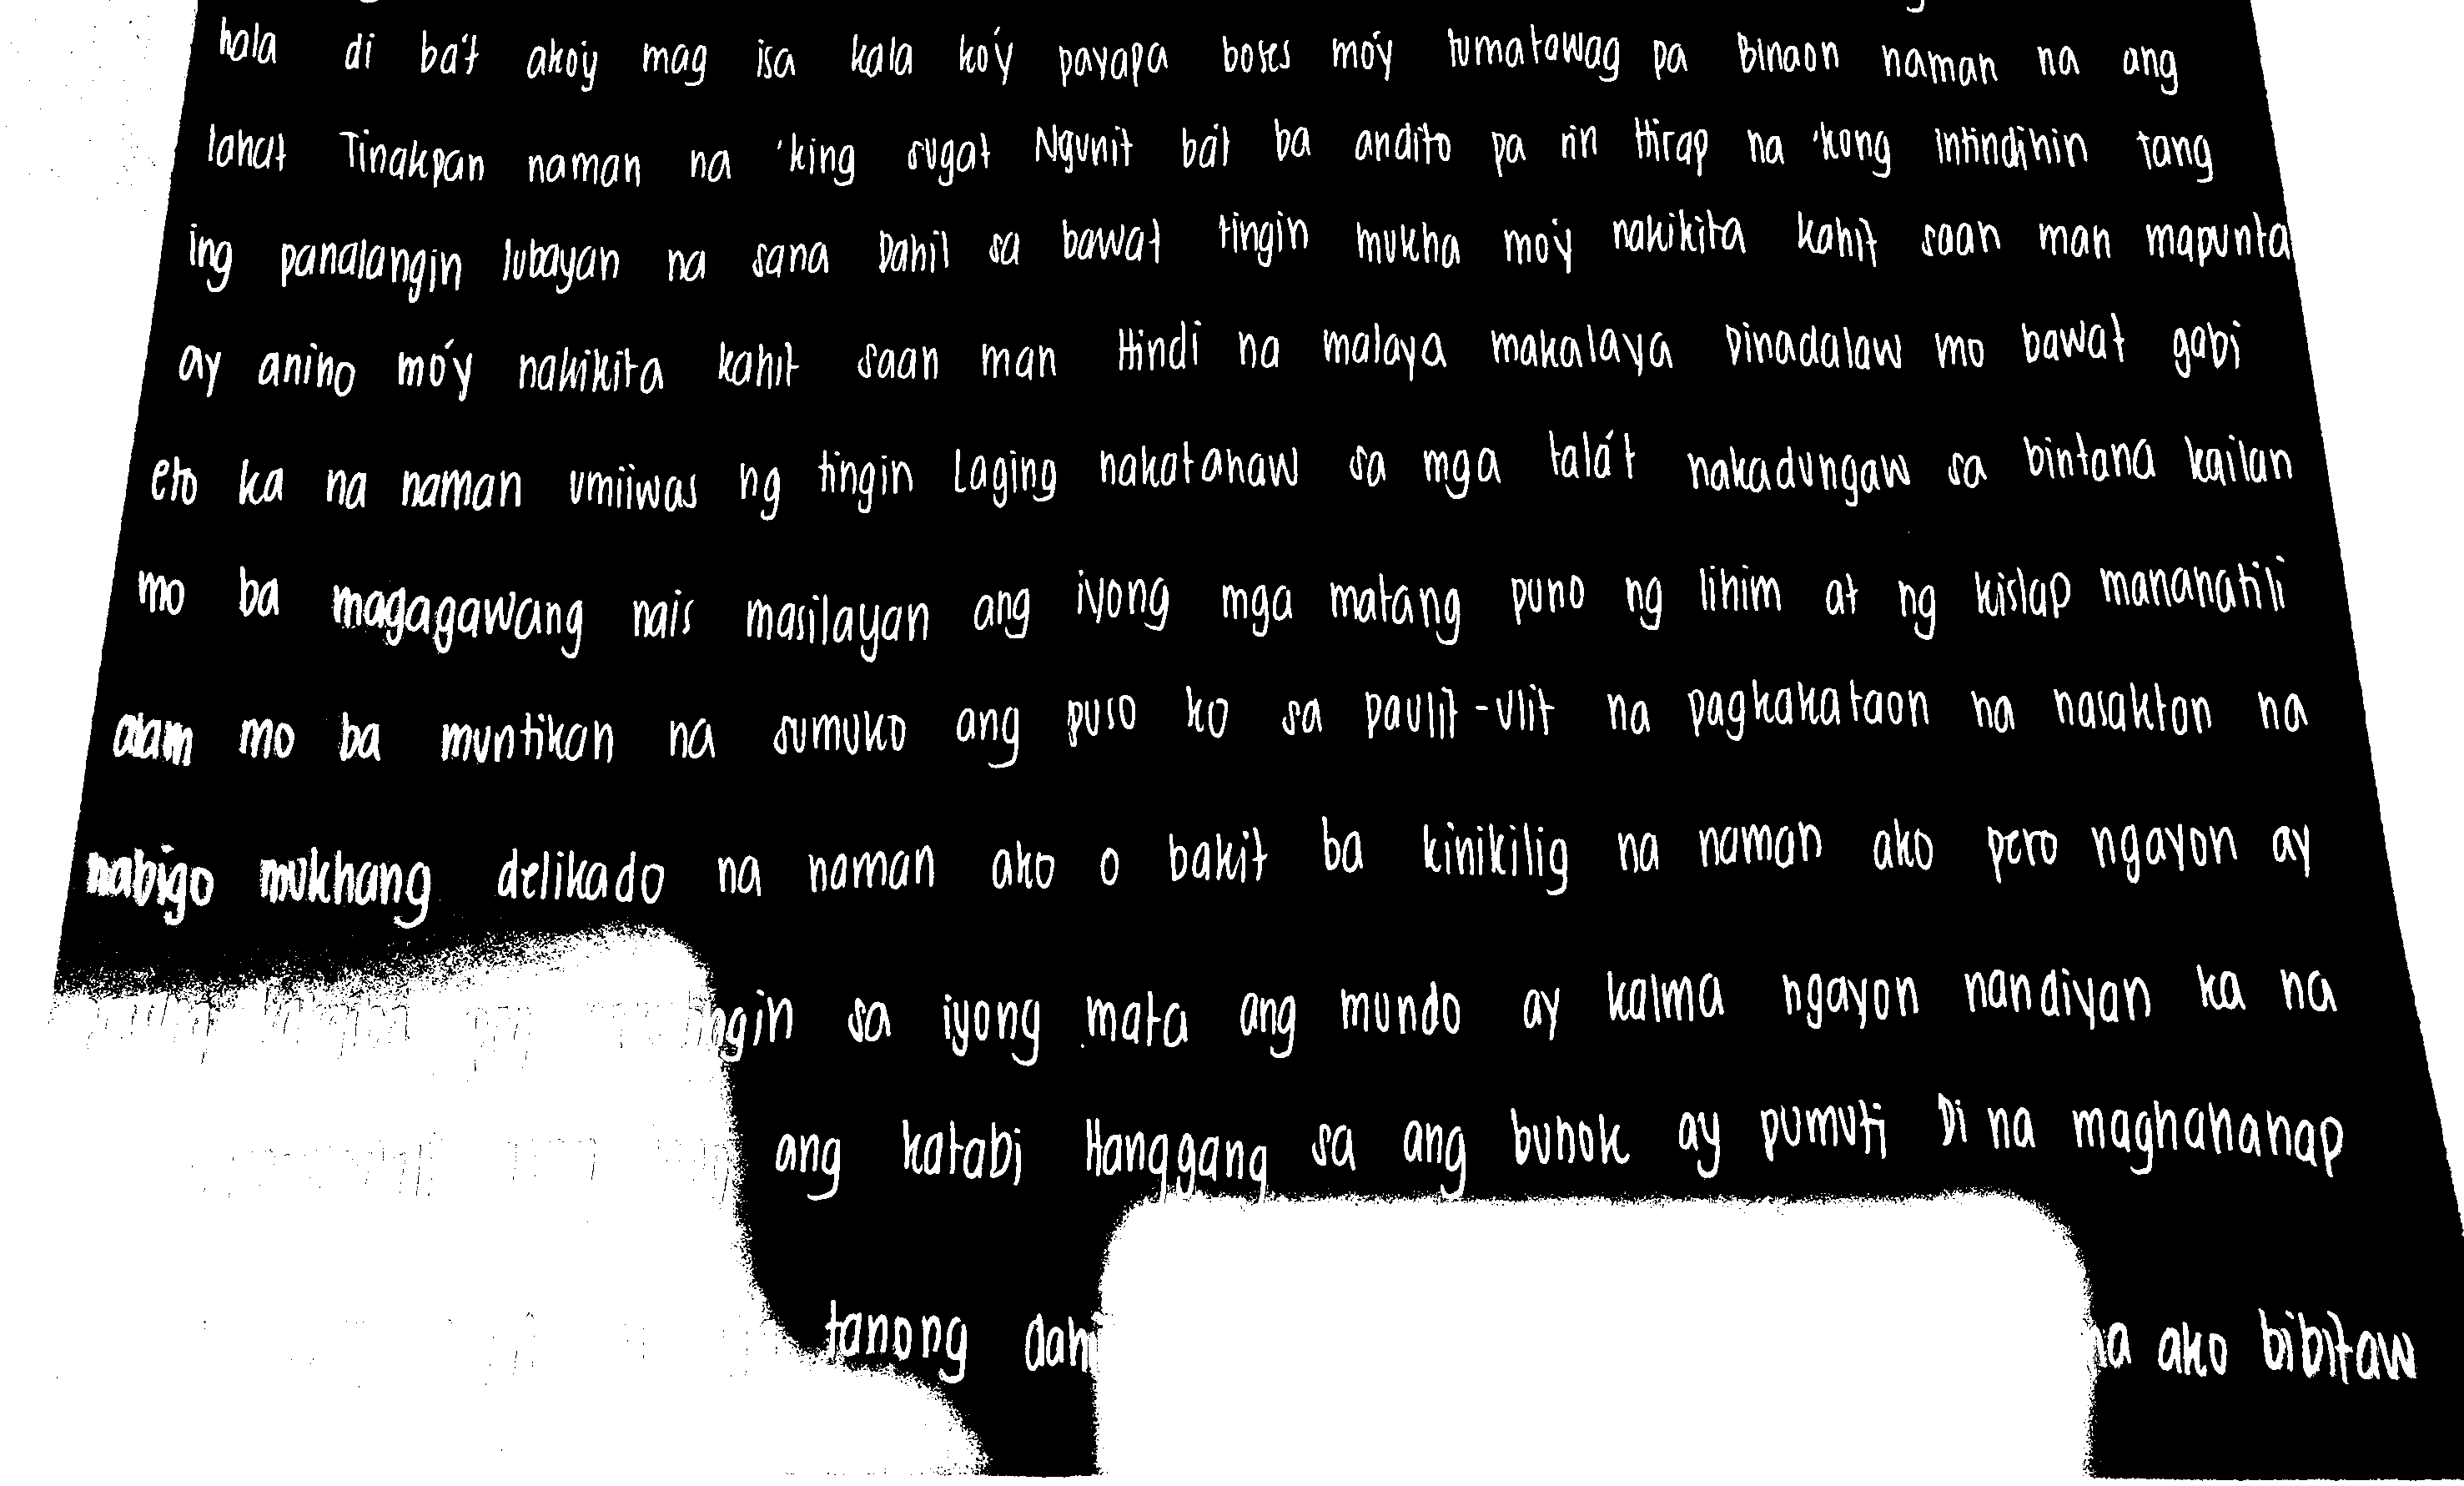 hala di ba't ako'y mag isa kala ko'y payapa boses mo'y tumatawag pa Binaon naman na ang
lahat Tinakpan naman na 'king sugat Ngunit ba't ba andito pa rin Hirap na 'kong intindihin tang
ing panalangin lubayan na sana Dahil sa bawat tingin mukha mo'y nakikita kahit saan man mapunta
ay anino mo'y nakikita kahit saan man Hindi na malaya makalaya Dinadalaw mo bawat gabi
eto ka na naman umiiwas ng tingin Laging nakatanaw sa mga tala't nakadungaw sa bintana kailan
mo ba magagawang nais masilayan ang iyong mga matang puno ng lihim at ng kislap mananatili
alam mo ba muntikan na sumuko ang puso ko sa paulit-ulit na pagkakataon na nasaktan na
nabigo mukhang delikado na naman ako o bakit ba kinikilig na naman ako pero ngayon ay
sa iyong mata ang mundo ay kalma ngayon nandiyan ka na
ang katabi Hanggang sa ang buhok ay pumuti Di na maghahanap
tanong ako bibitaw